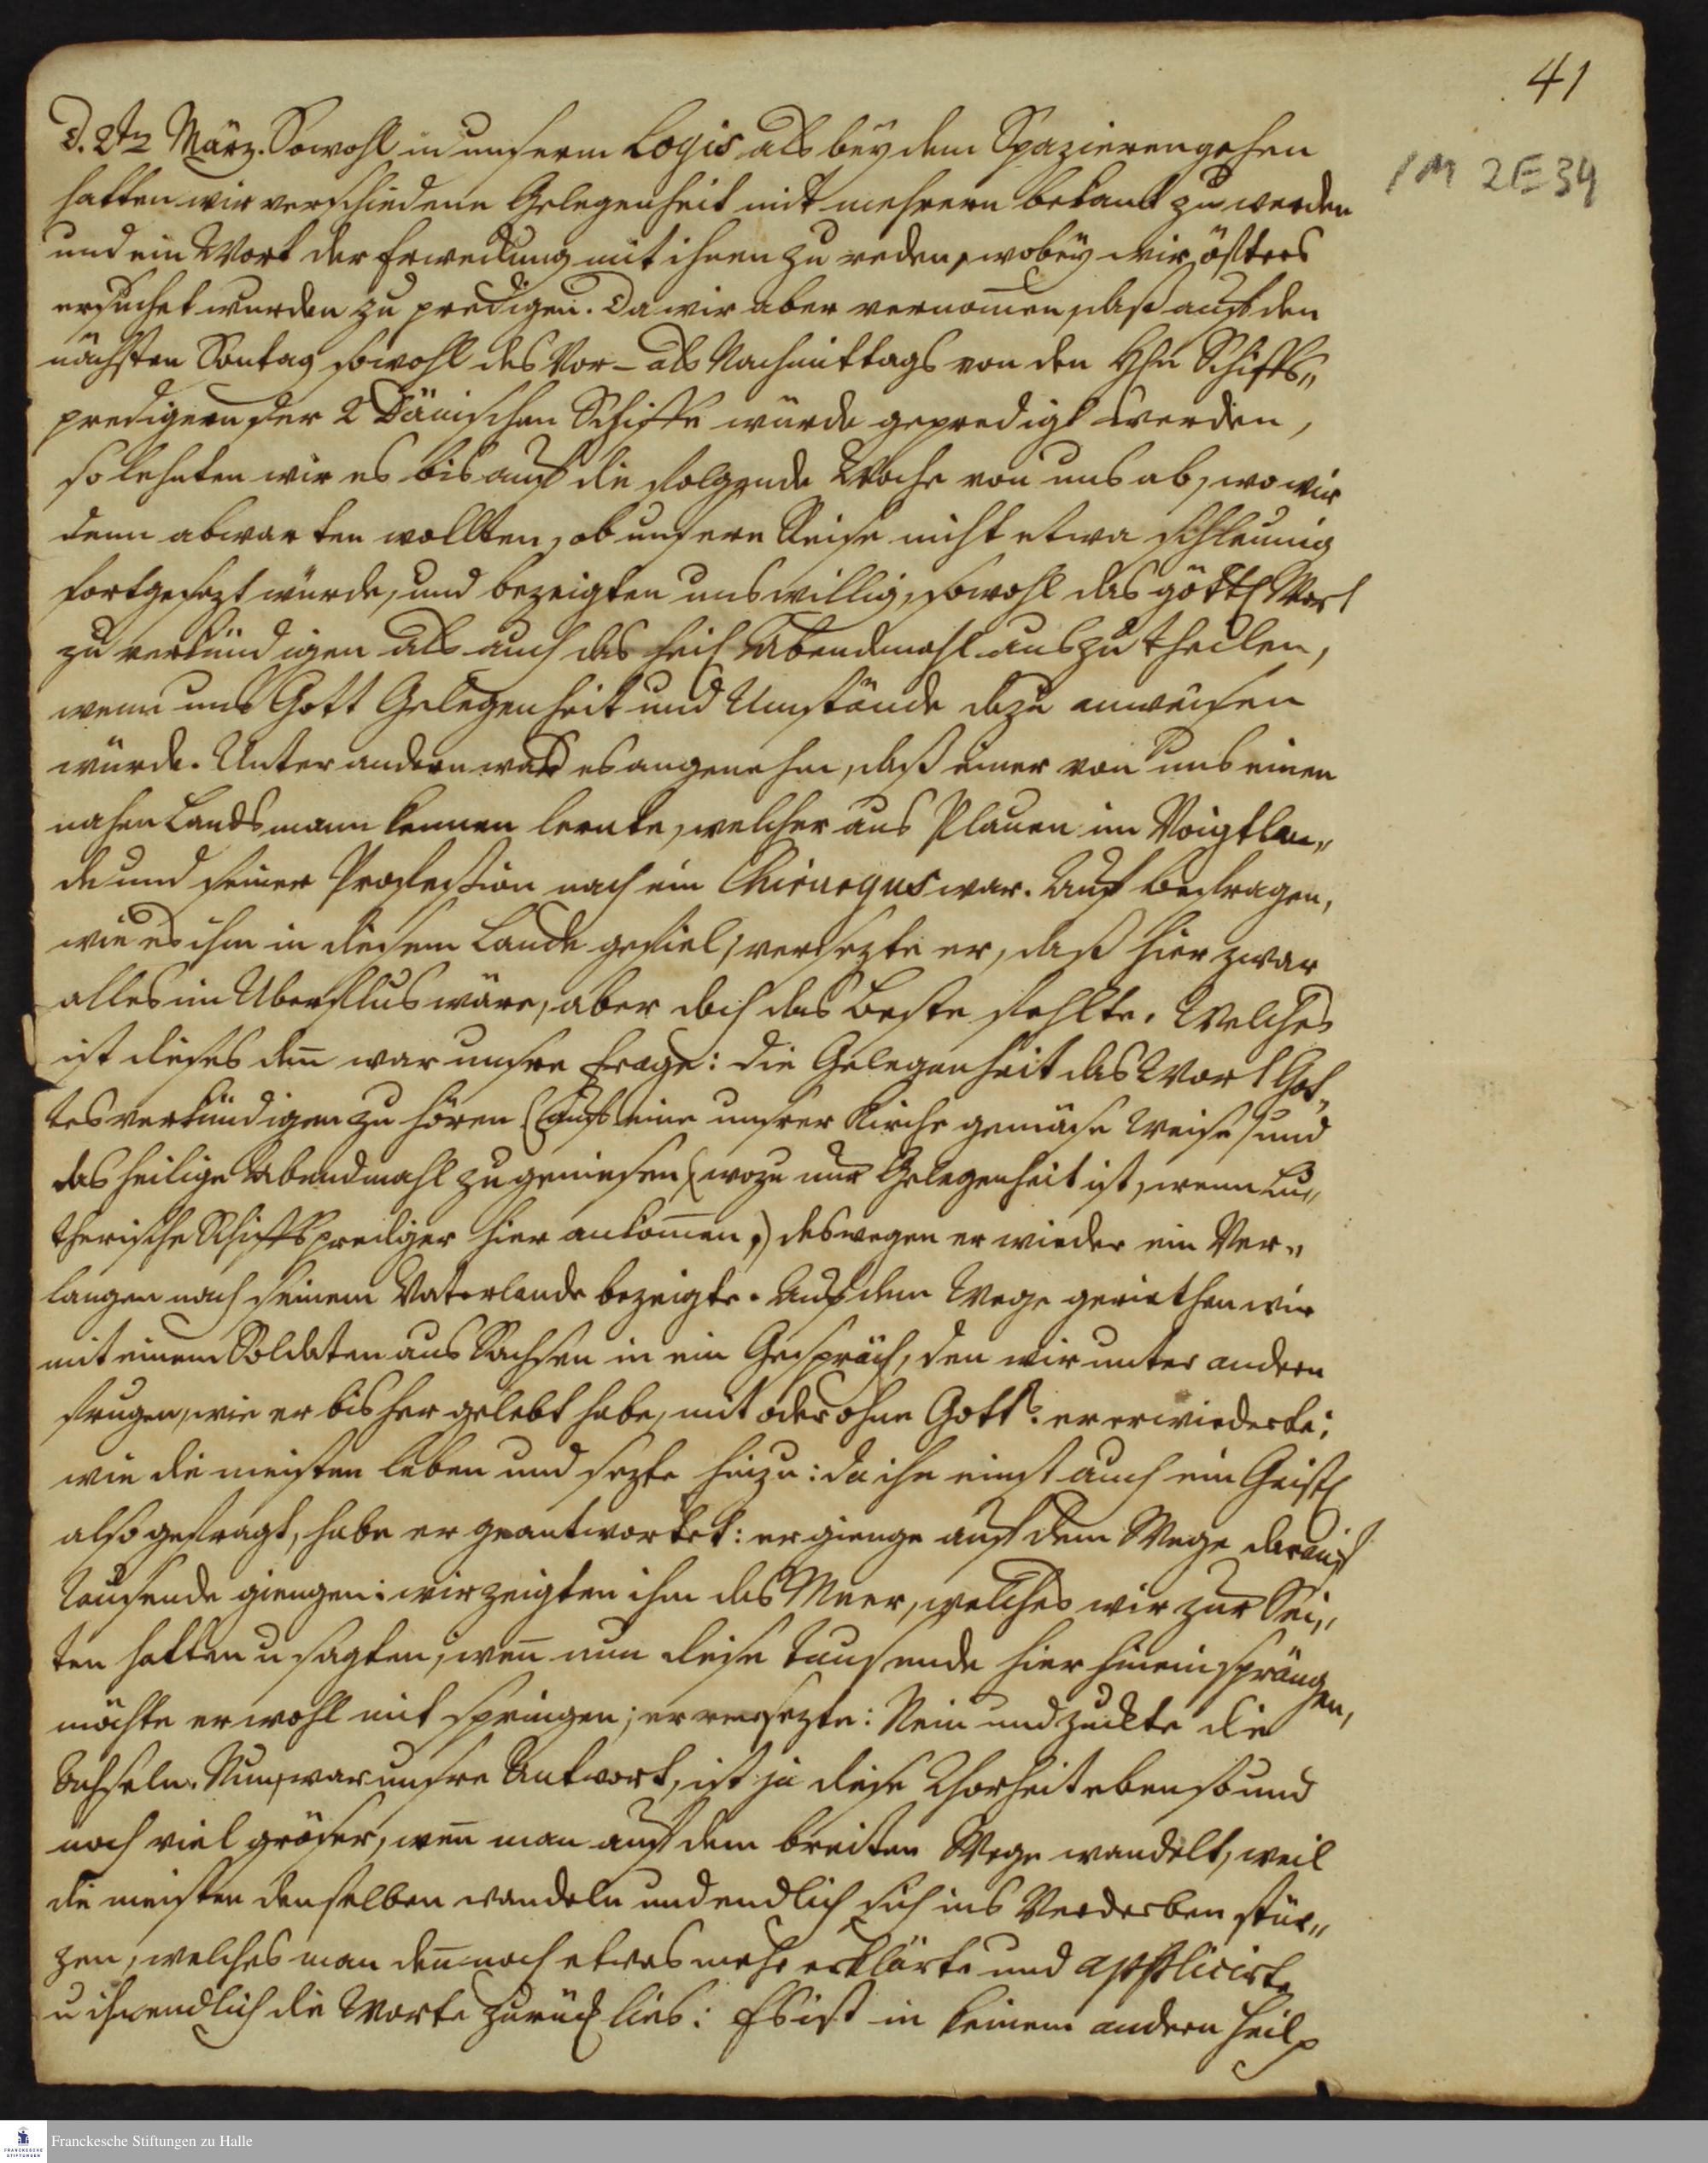 41
1 M 2 E 34
d. 2t März. Sowohl in unserm Logis als bey dem Spazierengehen
hatten wir verschiedene Gelegenheit mit mehrern bekant zu werden
und ein Wort der Erweckung mit ihnen zu reden, wobey wir öfters
ersuchet wurden zu predigen. Da wir aber vernomen, daß auf den
nächsten Sontag sowohl des Vor- als Nachmittags von den HHn Schiffs„
predigern der 2 Dänischen Schiffe würde gepredigt werden,
so lehnten wir es bis auf die folgende Woche von uns ab, wo wir
denn abwarten wollten, ob unsere Reise nicht etwa schleunig
fortgesezt würde, und bezeigten uns willig, sowohl das göttl Wort
zu verkündigen als auch das heil Abendmahl auszutheilen,
wenn uns Gott Gelegenheit und Umstände dazu anweisen
würde. Unter andern war es angenehm, daß einer von uns einen
nahen Landsmann kennen lernte, welcher aus Plauen im Voigtlan„
de und seiner Profession nach ein Chirurgus war. Auf Befragen,
wie es ihm in diesem Lande gefiel, versezte er, daß hier zwar
alles im Uberflus wäre, aber doch das Beste fehlte. Welches
ist dieses den war unsre Frage: die Gelegenheit das Wort Got„
tes verkündigen zu hören (auf eine unsrer Kirche gemäse Weise) und
das heilige Abendmahl zu geniesen (wozu nur Gelegenheit ist, wenn Lu„
therische Schiffsprediger hier ankomen,) deswegen er wieder ein Ver„
langen nach seinem Vaterlande bezeigte. Auf dem Wege geriethen wir
mit einem Soldaten aus Sachsen in ein Gespräch, den wir unter andern
frugen, wie er bisher gelebt habe, mit oder ohne Gott? er erwiederte:
wie die meisten leben und sezte hinzu: da ihn einst auch ein Geistl
also gefragt, habe er geantwortet: er gienge auf dem Wege darauf
Tausende giengen: wir zeigten ihm das Meer, welches wir zur Sei„
ten hatten u sagten, wen nun diese Tausende hier hineinsprängen,
möchte er wohl mit springen; er versezte: Nein und zuckte die
Achseln. Nun, war unsre Antwort, ist ja diese Thorheit ebenso und
noch viel gröser, wen man auf dem breiten Wege wandelt, weil
die meisten denselben wandeln und endlich sich ins Verderben stür„
zen, welches man den noch etwas mehr erklärte und applicirte
u ihm endlich die Worte zurück lies: Es ist in keinem andern Heil
Franckesche Stiftungen zu Halle